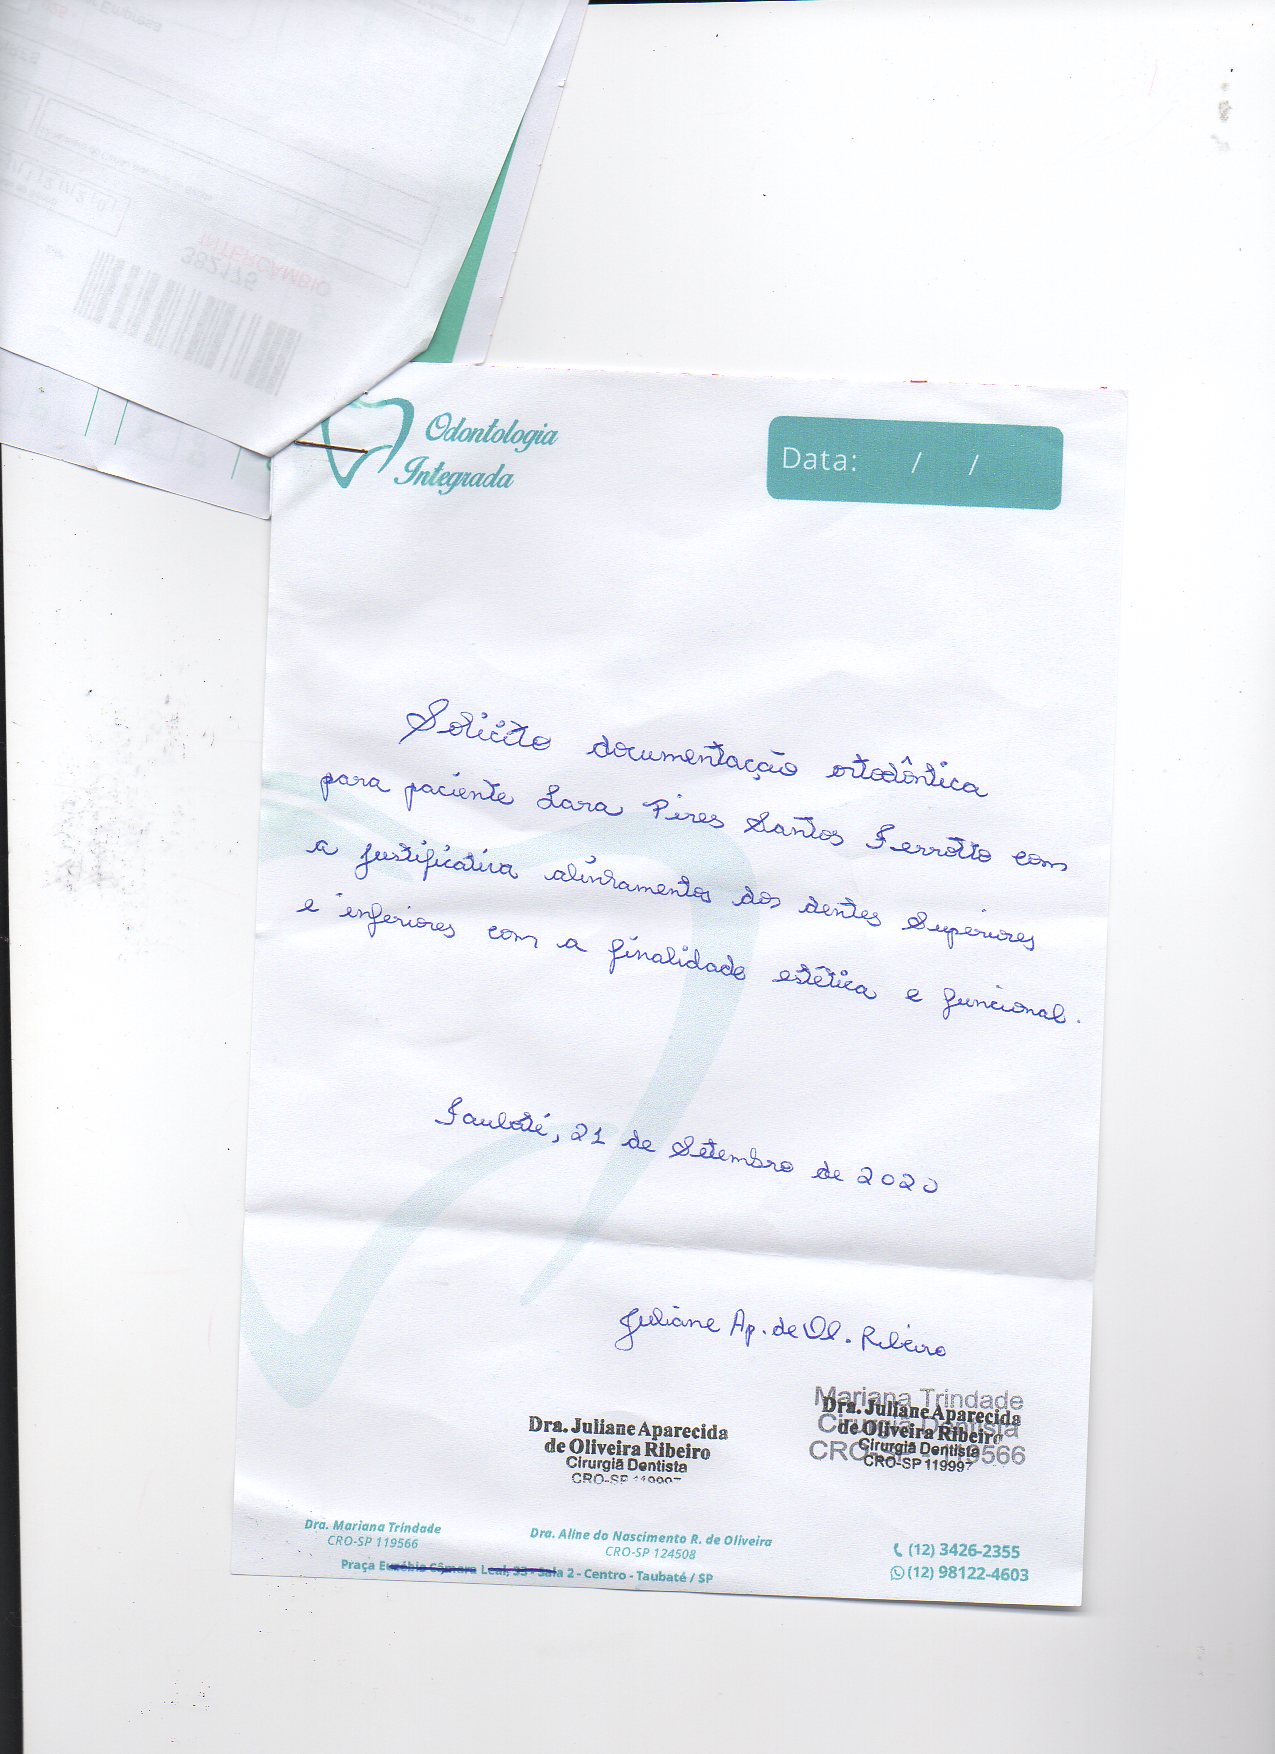 INTERCÂMBIO
382175
Odontologia
Integrada
Data: / /
Solicito documentação ortodôntica
para paciente Lara Pires Santos Ferrotto com
a justificativa alinhamentos dos dentes superiores
e inferiores com a finalidade estética e funcional.
Taubaté, 21 de Setembro de 2020
Juliane Ap. de Ol. Ribeiro
Mariana Trindade
Cirurgiã Dentista
CRO-SP 119566
Dra. Juliane Aparecida
de Oliveira Ribeiro
Cirurgiã Dentista
CRO-SP 119997
Dra. Juliane Aparecida
de Oliveira Ribeiro
Cirurgiã Dentista
CRO-SP 119997
Dra. Mariana Trindade
CRO-SP 119566
Dra. Aline do Nascimento R. de Oliveira
CRO-SP 124508
Praça Eusébio Câmara Leal, 33 - Sala 2 - Centro - Taubaté / SP
(12) 3426-2355
(12) 98122-4603